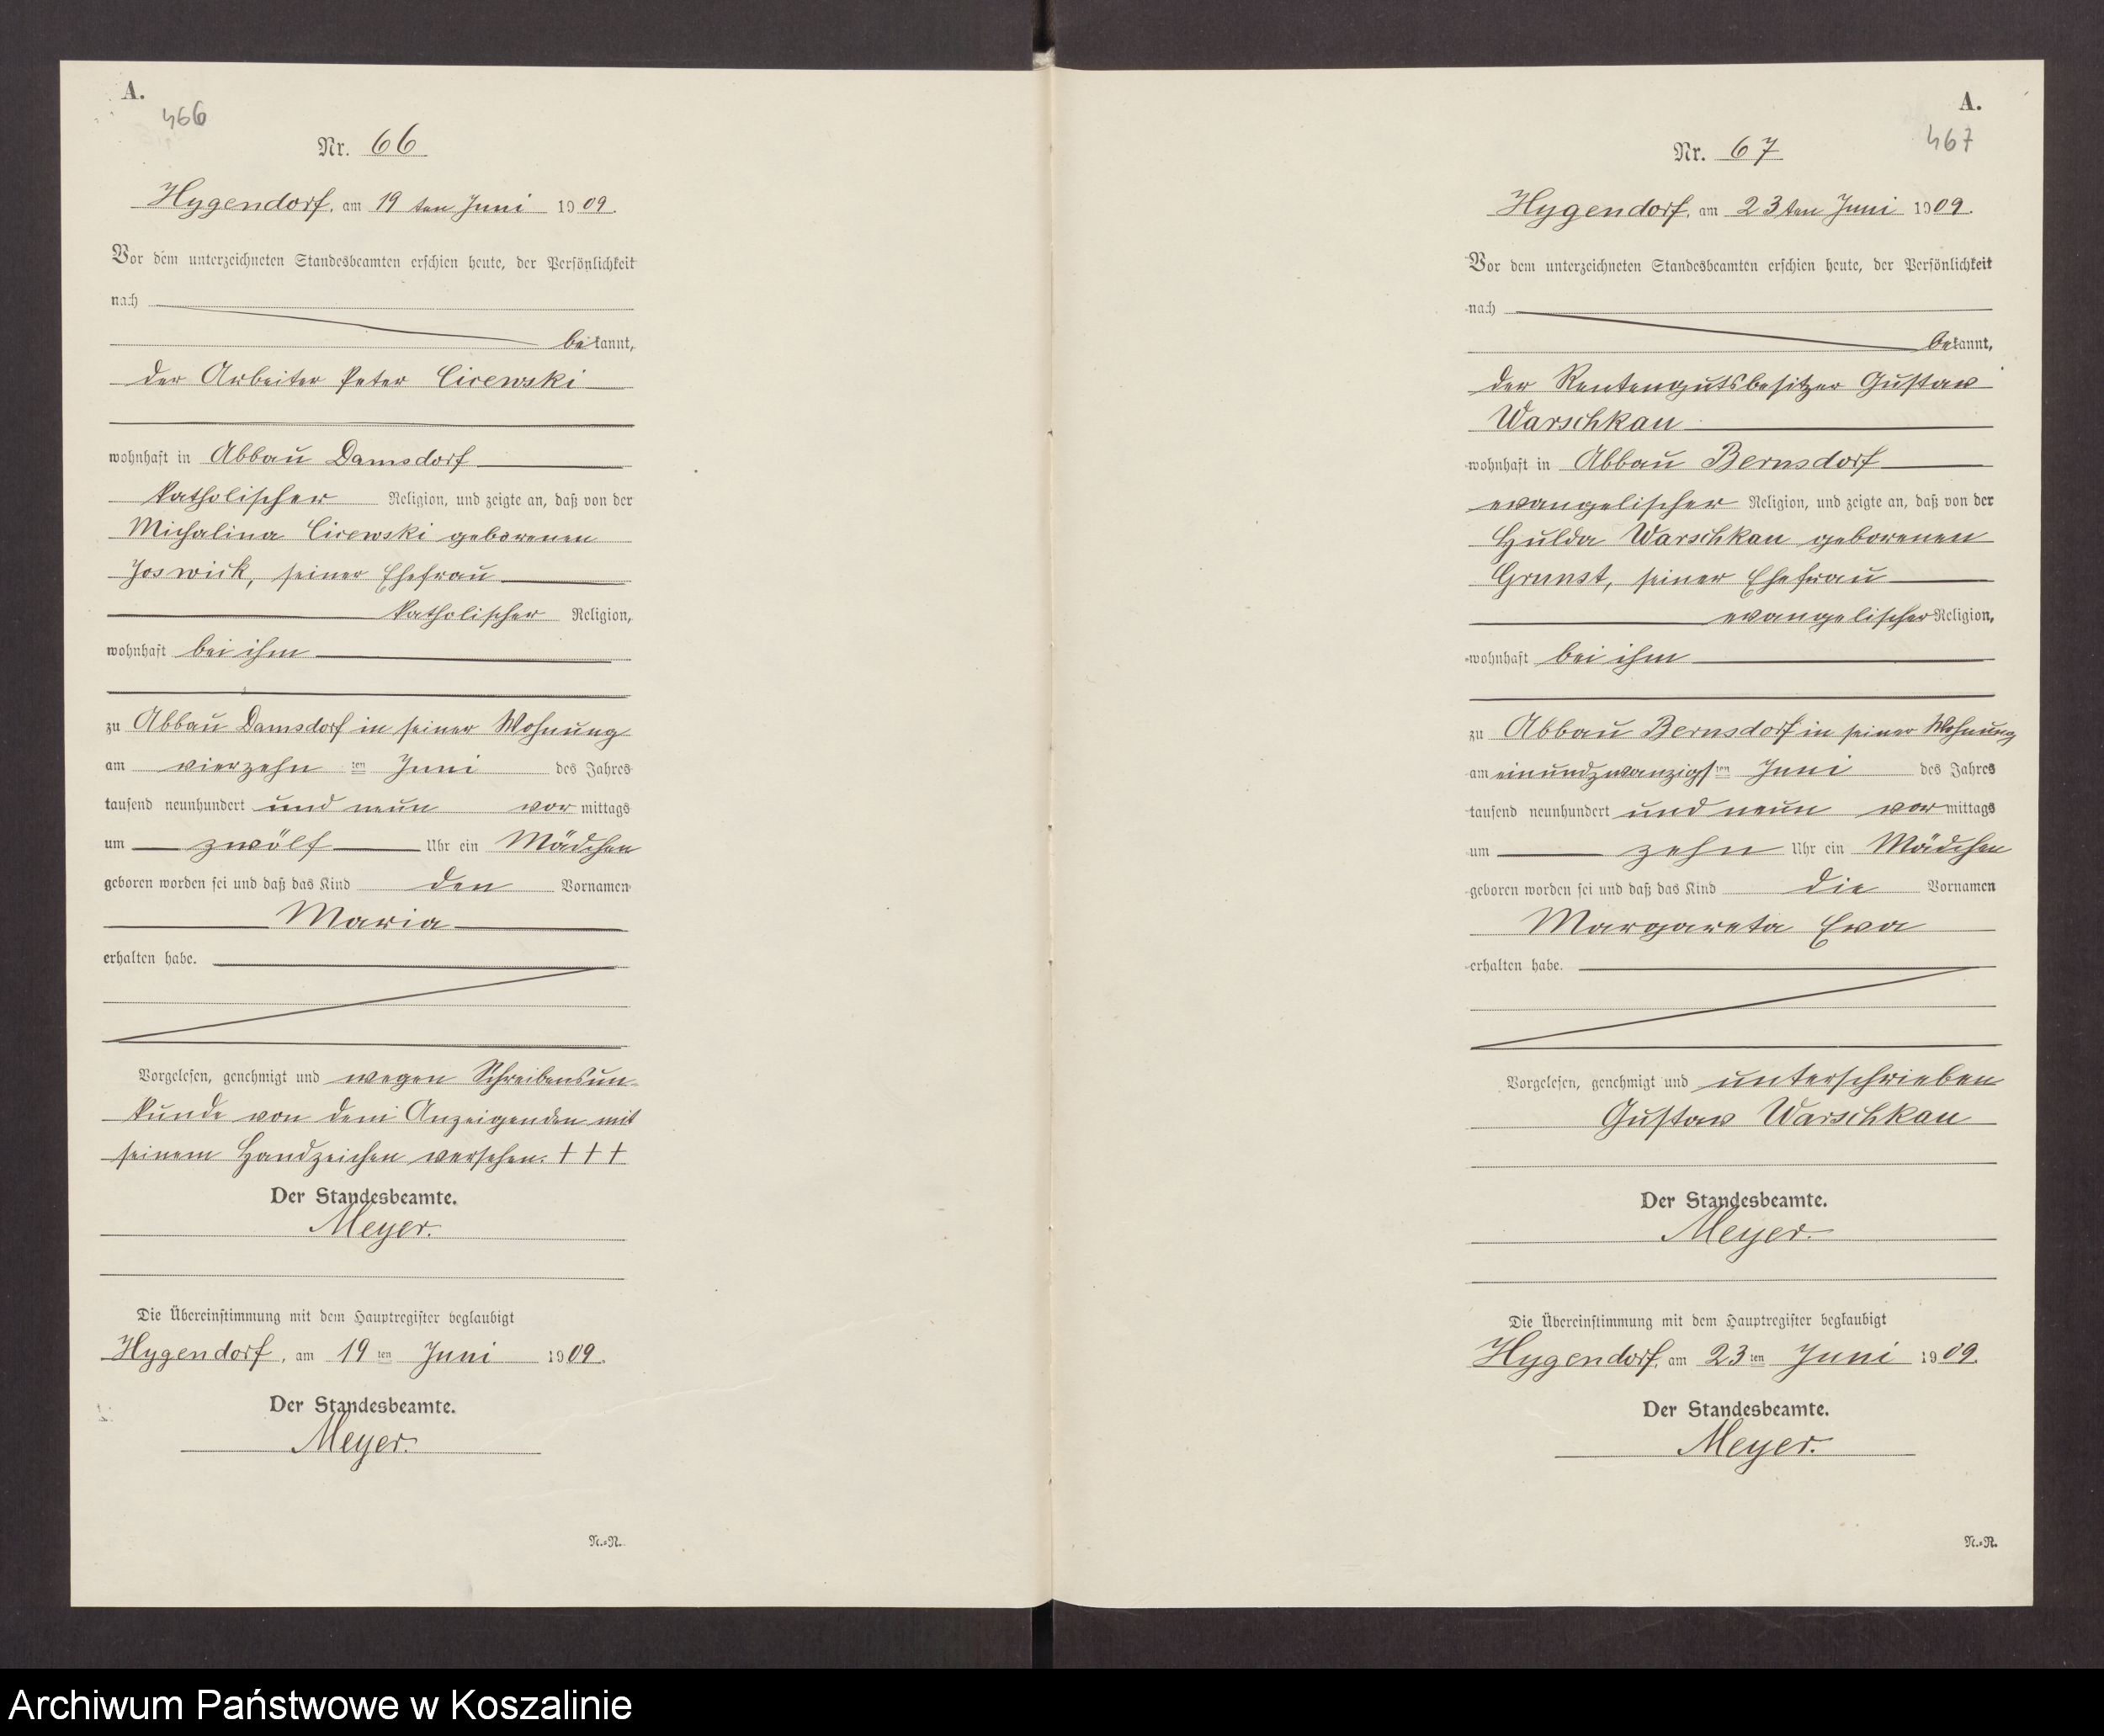 A.
466
Nr. 66
Hygendorf, am 19 ten Juni 1909.
Vor dem unterzeichneten Standesbeamten erschien heute, der Persönlichkeit
nach
bekannt,
der Arbeiter Peter Cirewski
wohnhaft in Abbau Damsdorf
katholischer Religion, und zeigte an, daß von der
Michalina Cirewski geborenen
Joswick, seiner Ehefrau
katholischer Religion,
wohnhaft bei ihm
zu Abbau Damsdorf in seiner Wohnung
am vierzehn ten Juni des Jahres
tausend neunhundert und neun vor mittags
um zwölf Uhr ein Mädchen
geboren worden sei und daß das Kind den Vornamen
Maria
erhalten habe.
Vorgelesen, genehmigt und wegen Schreibensun-
kunde von dem Anzeigenden mit
seinem Handzeichen versehen. + + +
Der Standesbeamte.
Meyer.
Die Übereinstimmung mit dem Hauptregister beglaubigt
Hygendorf, am 19 ten Juni 1909.
Der Standesbeamte.
Meyer.
N.=N.
A.
467
Nr. 67
Hygendorf, am 23 ten Juni 1909.
Vor dem unterzeichneten Standesbeamten erschien heute, der Persönlichkeit
nach
bekannt,
der Rentengutsbesitzer Gustav
Warschkau
wohnhaft in Abbau Bernsdorf
evangelischer Religion, und zeigte an, daß von der
Hulda Warschkau geborenen
Grunst, seiner Ehefrau
evangelischer Religion,
wohnhaft bei ihm
zu Abbau Bernsdorf in seiner Wohnung
am einundzwanzigsten Juni des Jahres
tausend neunhundert und neun vor mittags
um zehn Uhr ein Mädchen
geboren worden sei und daß das Kind die Vornamen
Margareta Eva
erhalten habe.
Vorgelesen, genehmigt und unterschrieben
Gustav Warschkau
Der Standesbeamte.
Meyer.
Die Übereinstimmung mit dem Hauptregister beglaubigt
Hygendorf, am 23 ten Juni 1909.
Der Standesbeamte.
Meyer.
N.=N.
Archiwum Państwowe w Koszalinie